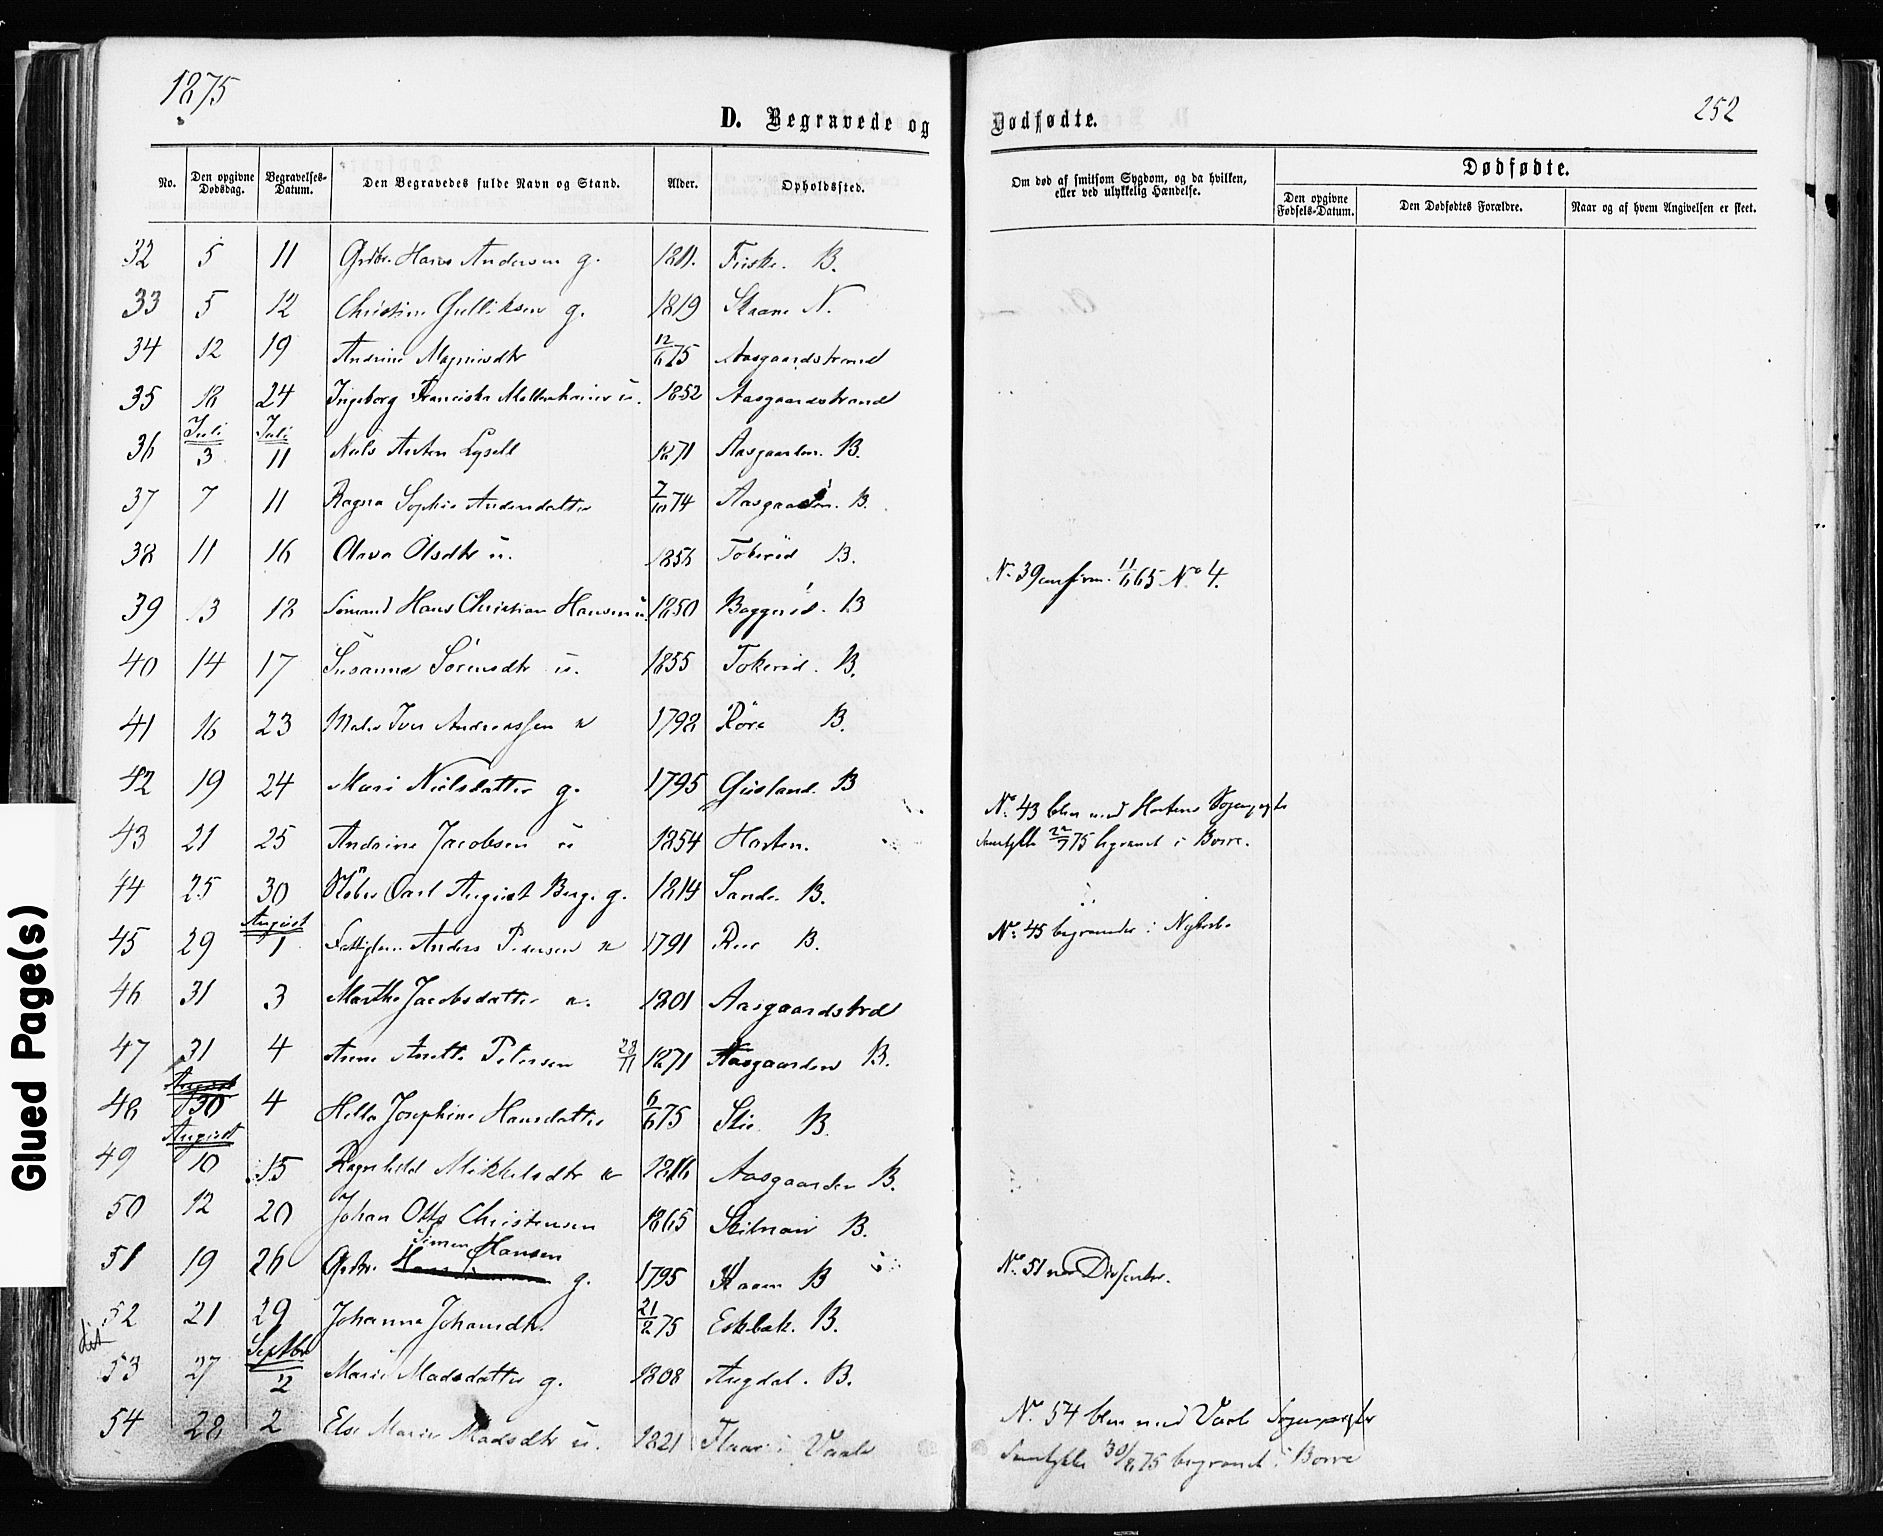 1875
252
D. Begravede og Dødfødte.
No. Den opgivne Dødsdag. Begravelses-Datum. Den Begravedes fulde Navn og Stand. Alder. Opholdssted. Om død af smitsom Sygdom, og da hvilken, eller ved ulykkelig Hændelse. Dødfødte.
Den opgivne Fødsels-Datum. Den Dødfødtes Forældre. Naar og af hvem Angivelsen er skeet.
32 5 11 Grdbr. Hans Andersen g. 1811. B.
33 5 12 Christine Gulliksen g. 1819 Skaane N.
34 12 19 Andrine Magnusdtr 12/6 75 Aasgaardstrand
35 18 24 Ingeborg Franciska u. 1852 Aasgaardstrand
Juli Juli
36 3 11 Niels Anton Lysell 1871 Aasgaarden. B.
37 7 11 Ragna Sophie Andersdatter 7/10 74 Aasgaarden. B.
38 11 16 Olava Olsdtr u. 1856 Tokerød B.
39 13 18 Sømand Hans Christian Hansen u. 1850 Baggerød. B
No 39 confirm. 11/6 65 No 4.
40 14 17 Susanne Sørensdtr u. 1855 Tokerød. B.
41 16 23 Maler Iver Andreassen 1798 Røre B.
42 19 24 Mari Nielsdatter g. 1795 Gusland. B
43 21 25 Andrine Jacobsen u 1854 Horten.
No. 43 blev med Hortens Sogneprests
Samtykke 22/7 75 begravet i Borre.
44 25 30 Carl August Berg. g. 1814 Sande. B.
August
45 29 1 Anders Pedersen 1791 B.
No. 45 begravedes i Nykirke
46 31 3 Marthe Jacobsdatter e. 1801 Aasgaardstrd
47 31 4 Anne Anette Petersen 28/11 1871 Aasgaarden B.
August
48 30 4 Josephine Hansdatter 6/6 75 B.
August
49 10 15 Ragnhild Mikkelsdtr 1816 Aasgaarden B.
50 12 20 Johan Otto Christensen 1865 B.
51 19 26 Grdbr. Simen Hansen g. 1795 B
No. 51 var Dissenter.
52 21 29 Johanne Johansdtr. 21/2 75 Eskebæk. B.
Septbr
53 27 2 Marie Madsdatter g. 1808 Augdal. B.
54 28 2 Else Marie Madsdtr u. 1821 i Vaale
No. 54 blev med Vaale Sogneprests
Samtykke 30/8 75 begravet i Borre
Glued Page(s)